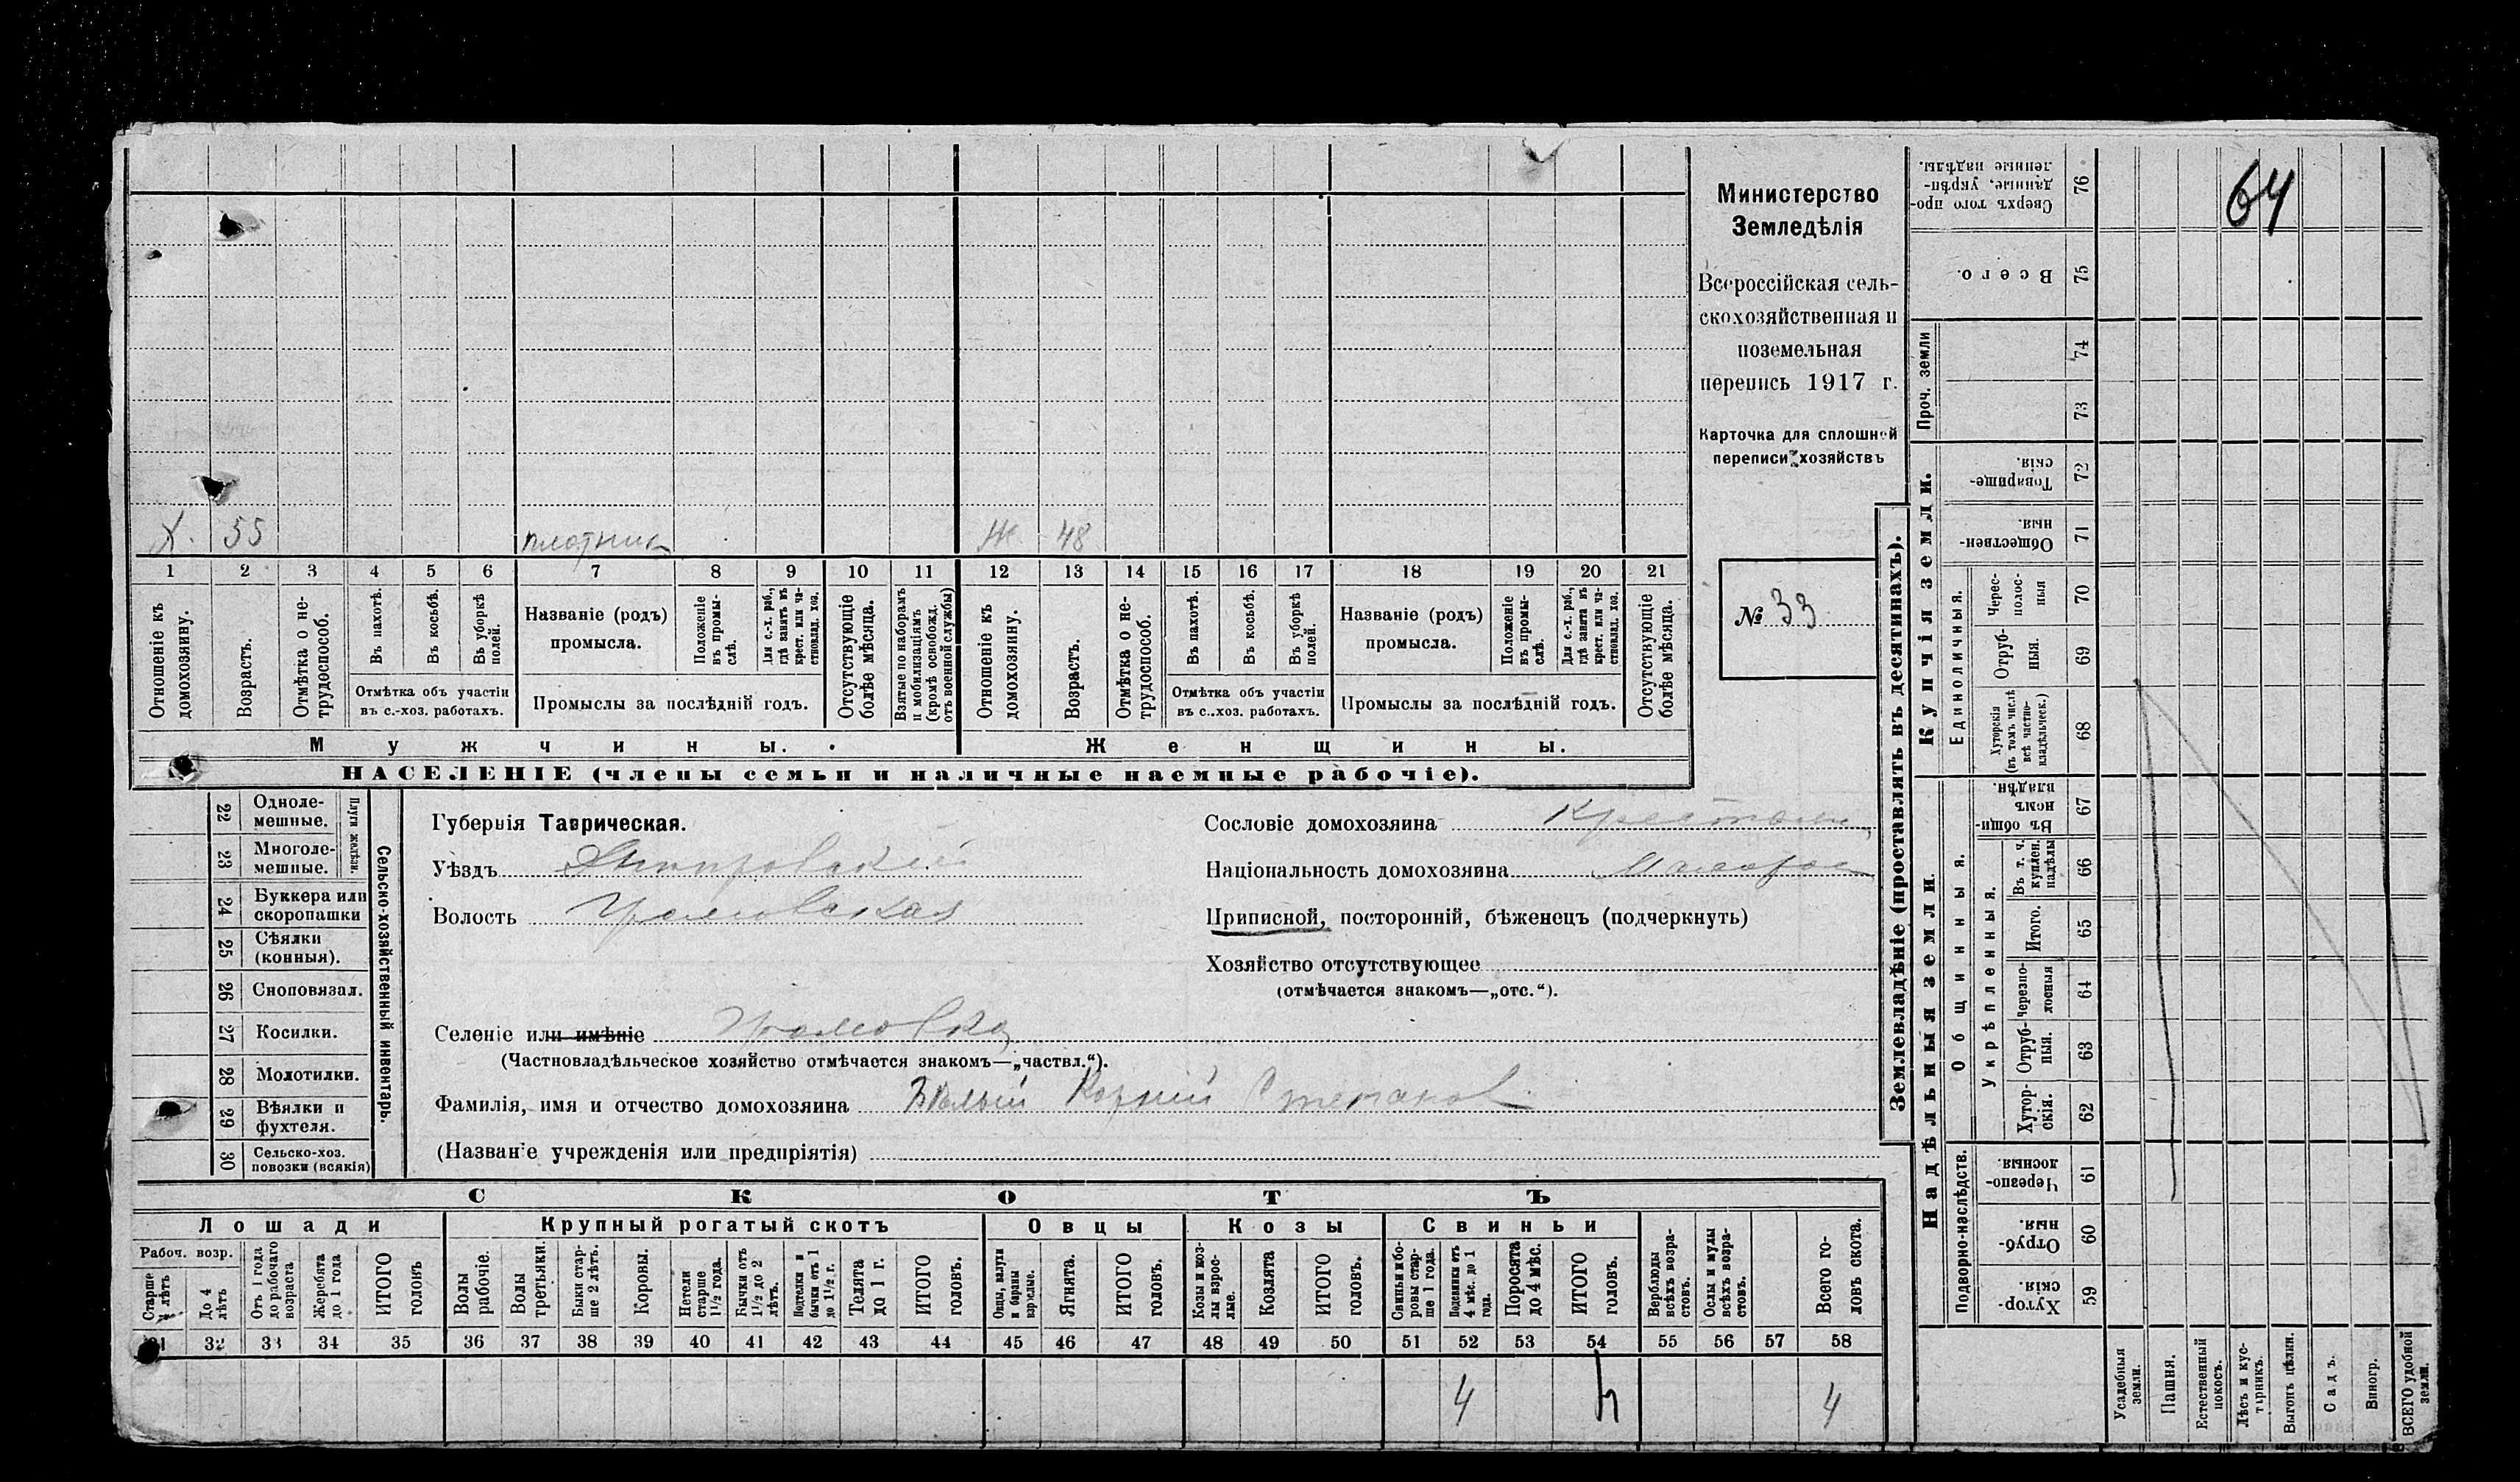 64
Министерство
Земледѣлія
Всероссійская сель-
скохозяйственная и
поземельная
перепись 1917 г.
Карточка для сплошной
переписи хозяйствъ
№ 33
Х. 55 плотник Ж 48
1 2 3 4 5 6 7 8 9 10 11 12 13 14 15 16 17 18 19 20 21
Отношеніе къ домохозяину.
Возрастъ.
Отмѣтка о не-трудоспособ.
Въ пахотѣ.
Въ косьбѣ.
Въ уборкѣ полей.
Отмѣтка объ участіи
въ с.-хоз. работахъ.
Названіе (родъ)
промысла.
Положеніе въ промы-слѣ.
Для с.-х. раб., гдѣ занятъ въ крест. или ча-стновлад. хоз.
Промыслы за послѣдній годъ.
Отсутствующіе болѣе мѣсяца.
Взятые по наборамъ и мобилизаціямъ (кромѣ освобожд. отъ военной службы)
Отношеніе къ домохозяину.
Возрастъ.
Отмѣтка о не-трудоспособ.
Въ пахотѣ.
Въ косьбѣ.
Въ уборкѣ полей.
Отмѣтка объ участіи
въ с.-хоз. работахъ.
Названіе (родъ)
промысла.
Положеніе въ промы-слѣ.
Для с.-х. раб., гдѣ занята въ крест. или ча-стновлад. хоз.
Промыслы за послѣдній годъ.
Отсутствующіе болѣе мѣсяца.
Мужчины. Женщины.
НАСЕЛЕНІЕ (члены семьи и наличные наемные рабочіе).
22 Одноле-мешные.
23 Многоле-мешные.
Плуги желѣзн.
24 Буккера или скоропашки
25 Сѣялки (конныя).
26 Сноповязал.
27 Косилки.
28 Молотилки.
29 Вѣялки и фухтеля.
30 Сельско-хоз. повозки (всякія)
Сельско-хозяйственный инвентарь.
Губернія Таврическая.
Уѣздъ Днипровский
Волость
Селеніе или имѣніе
(Частновладѣльческое хозяйство отмѣчается знакомъ—„частвл.“).
Фамилія, имя и отчество домохозяина Бѣлый Корній Степанов
(Названіе учрежденія или предпріятія)
Сословіе домохозяина
Національность домохозяина Малорос
Приписной, посторонній, бѣженецъ (подчеркнуть)
Хозяйство отсутствующее
(отмѣчается знакомъ—„отс.“).
СКОТЪ
Лошади Крупный рогатый скотъ Овцы Козы Свиньи
Рабоч. возр.
Старше 4 лѣтъ
До 4 лѣтъ
Отъ 1 года до рабочаго возраста
Жеребята до 1 года
ИТОГО головъ
Волы рабочіе.
Волы третьяки.
Быки стар-ше 2 лѣтъ.
Коровы.
Нетели старше 1½ года.
Бычки отъ 1½ до 2 лѣтъ.
Нетелки и бычки отъ 1 до 1½ г.
Телята до 1 г.
ИТОГО головъ.
Овцы, валухи и бараны взрослые.
Ягнята.
ИТОГО головъ.
Козы и коз-лы взрос-лые.
Козлята
ИТОГО головъ.
Свиньи и бо-ровы стар-ше 1 года.
Подсвинки отъ 4 мѣс. до 1 года.
Поросята до 4 мѣс.
ИТОГО головъ.
Верблюды всѣхъ возра-стовъ.
Ослы и мулы всѣхъ возра-стовъ.
Всего го-ловъ скота.
31 32 33 34 35 36 37 38 39 40 41 42 43 44 45 46 47 48 49 50 51 52 53 54 55 56 57 58
4 4 4
Землевладѣніе (проставлять въ десятинахъ).
Надѣльныя земли. Купчія земли.
Проч. земли
Подворно-наслѣдств.
Общинныя.
Укрѣпленныя.
Единоличныя.
Хутор-скія. 59
Отруб-ныя. 60
Черезпо-лосныя. 61
Хутор-скія. 62
Отруб-ныя. 63
Черезпо-лосныя 64
Итого. 65
Въ т. ч. куплен. надѣлы 66
Въ общин-номъ владѣн. 67
Хуторскія (въ томъ числѣ всѣ частно-владѣльческ.) 68
Отруб-ныя. 69
Черес-полос-ныя 70
Обществен-ныя. 71
Товарище-скія. 72
73
74
Всего. 75
Сверхъ того про-данные, укрѣп-ленные надѣлы. 76
Усадебныя земли.
Пашня.
Естественный покосъ.
Лѣсъ и кус-тарникъ.
Выгонъ цѣлин.
Садъ.
Виногр.
ВСЕГО удобной земли.